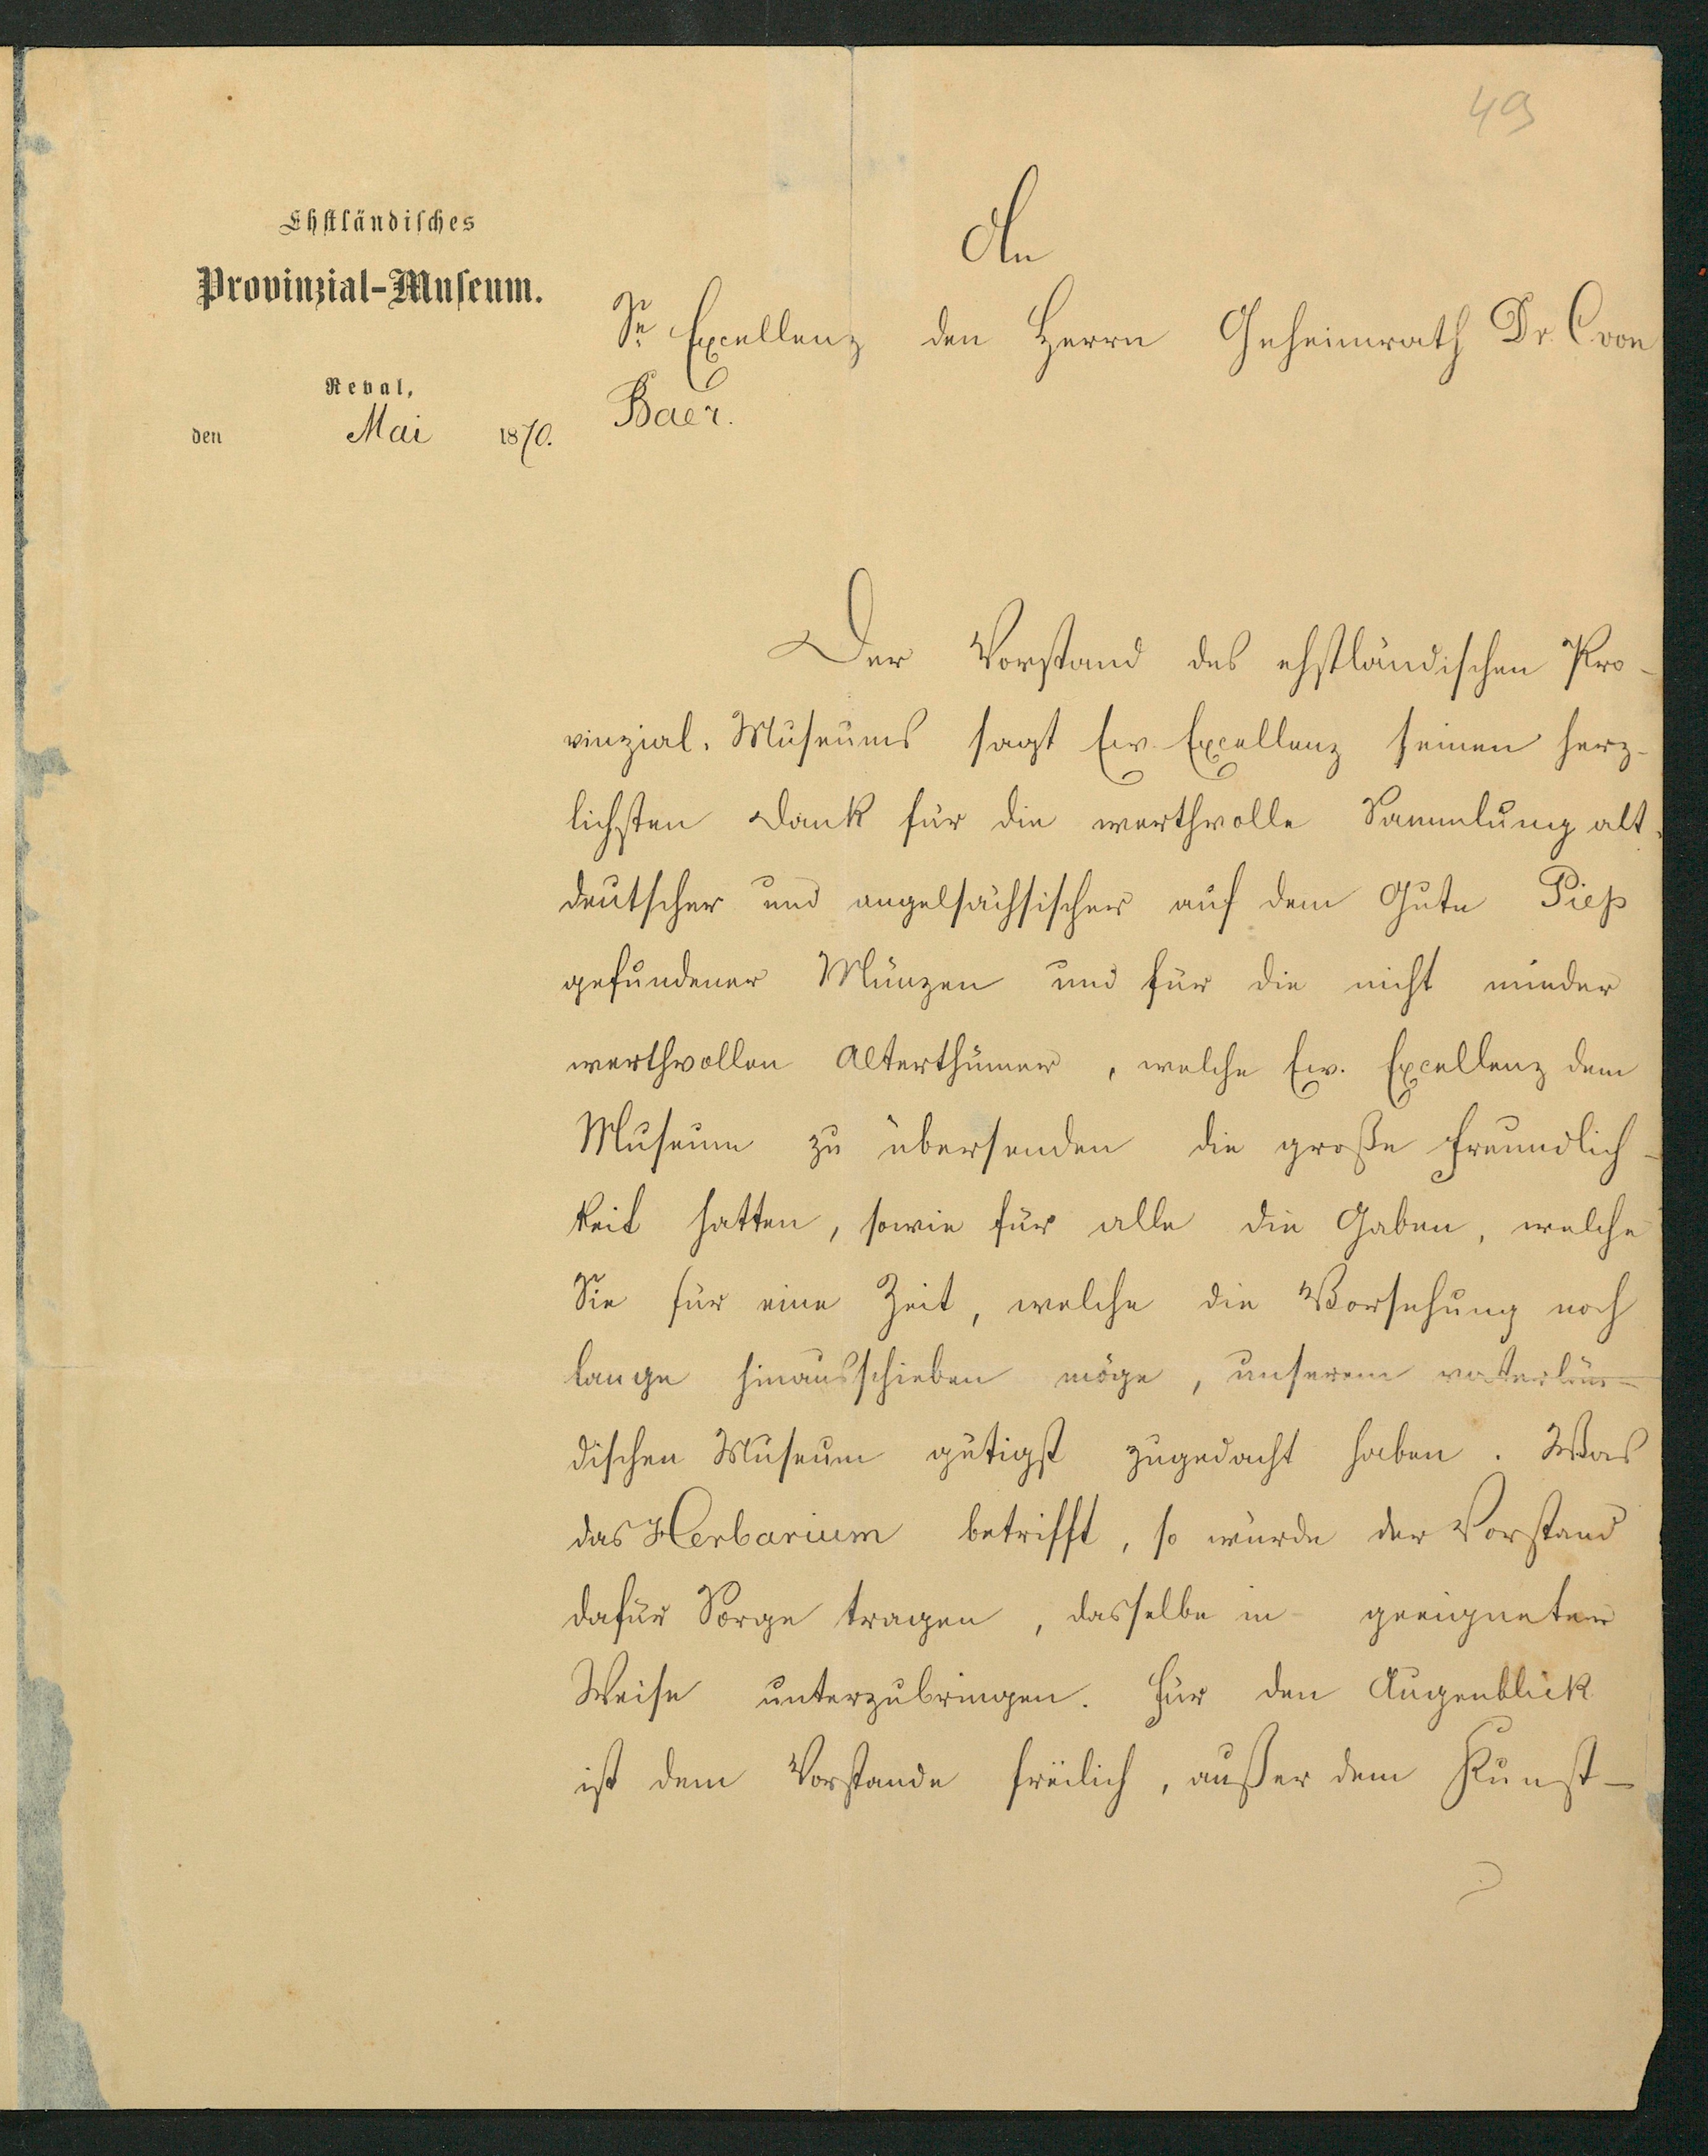 49
Ehstländisches
Provinzial-Museum.
Reval,
den Mai 1870.
An
Sr. Excellenz den Herrn Geheimrath Dr. C von
Baer.
Der Vorstand des ehstländischen Pro-
vinzial-Museums sagt Ew. Excellenz seinen herz-
lichsten Dank für die werthvolle Sammlung alt-
deutscher und angelsächsischer auf dem Gute Piep
gefundener Münzen und für die nicht minder
werthvollen Alterthümer, welche Ew. Excellenz dem
Museum zu übersenden die große Freundlich-
keit hatten, sowie für alle die Gaben, welche
Sie für eine Zeit, welche die Vorsehung noch
lange hinausschieben möge, unserem vaterlän-
dischen Museum gütigst zugedacht haben. Was
das Herbarium betrifft, so würde der Vorstand
dafür Sorge tragen, dasselbe in geeigneter
Weise unterzubringen. Für den Augenblick
ist dem Vorstande freilich, außer dem Kunst-